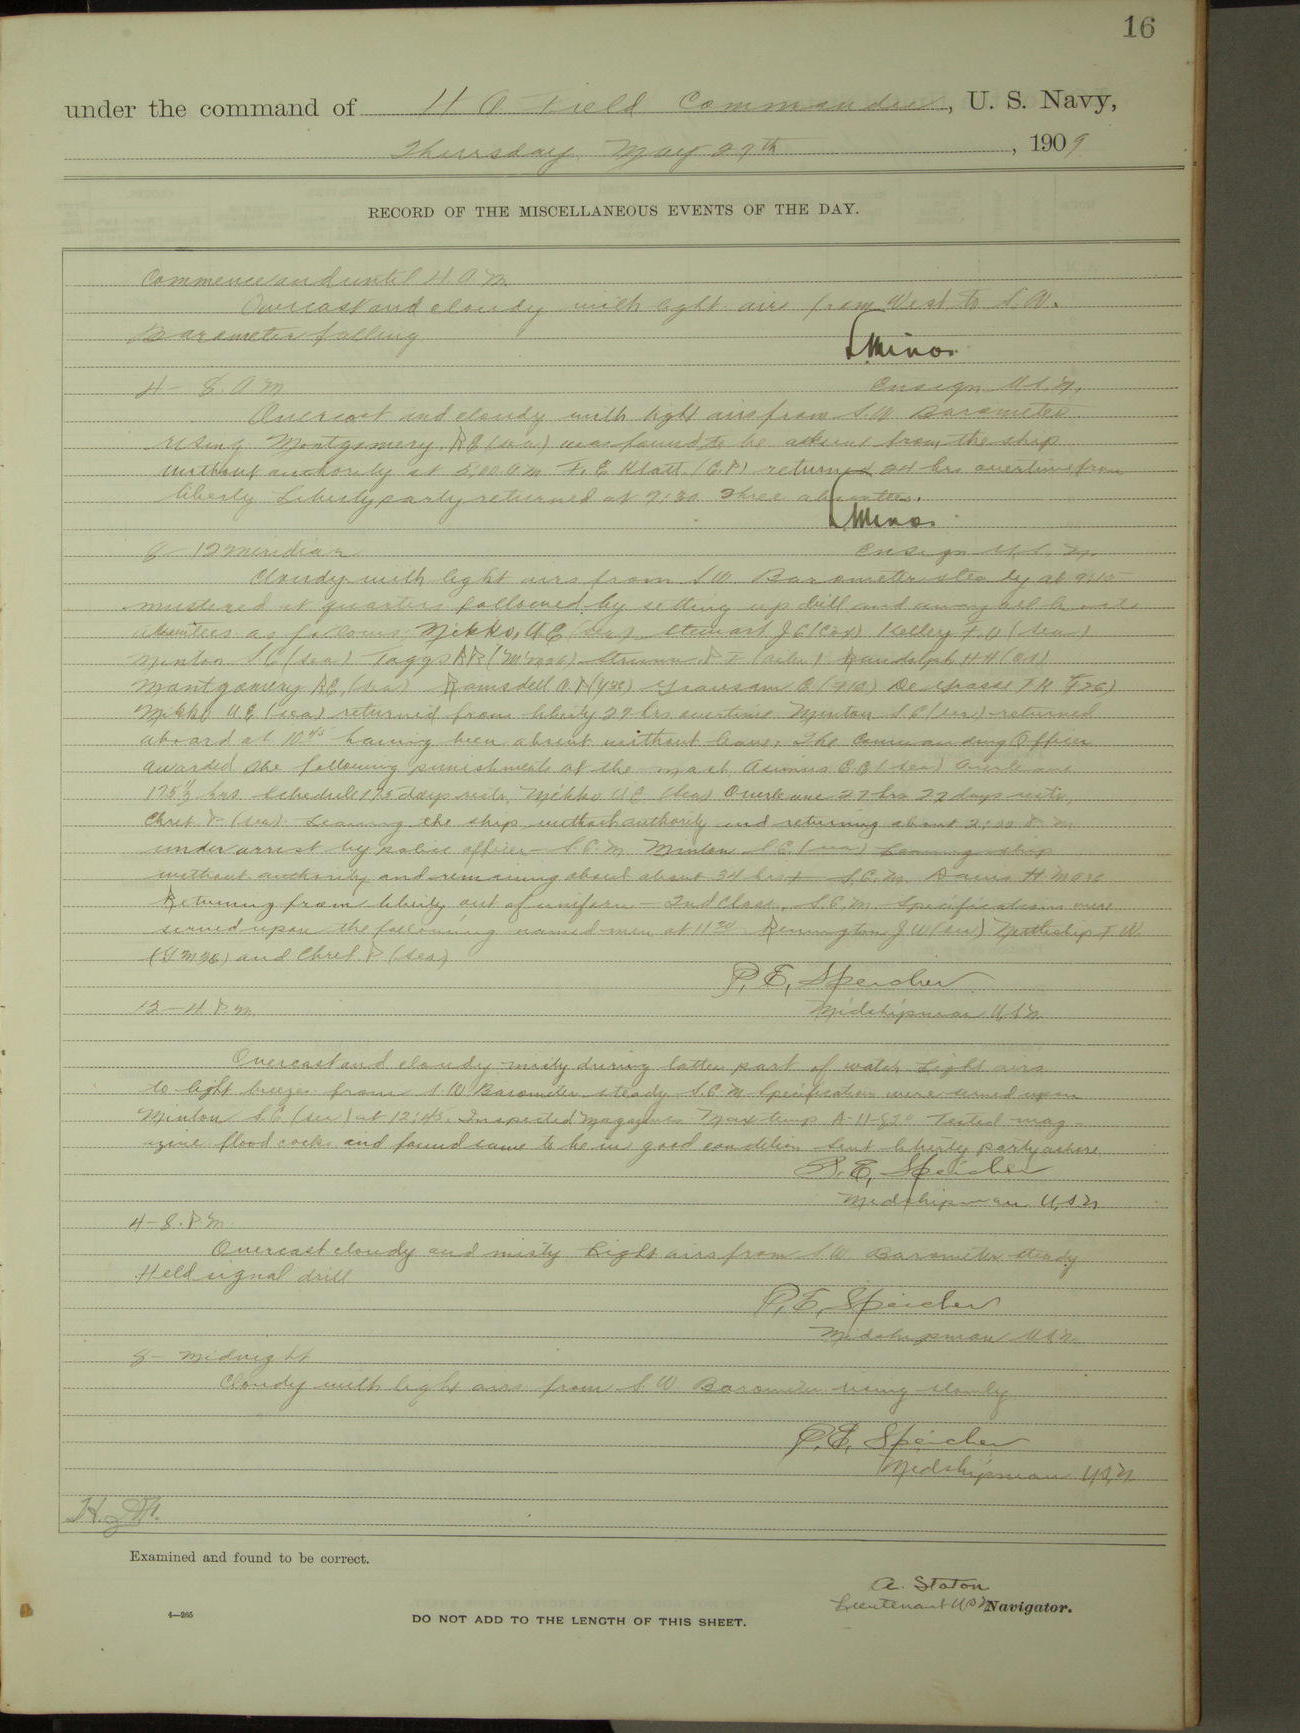 16
under the command of H A Field Commander, U. S. Navy,
Thursday May 27th, 1909
RECORD OF THE MISCELLANEOUS EVENTS OF THE DAY.
Commence and until 4 A M
Overcast and cloudy with light airs from West to S. W.
Barometer falling
L Minor
4 - 8 A M
Ensign U.S.N.
Overcast and cloudy with light airs from S.W. Barometer
rising Montgomery, R E (sea) was found to be absent from the ship
without authority at 5,00 a.m. F. E Klatt (C.P.) returned 24 hrs overtime from
liberty Liberty party returned at 7:30 Three absentees.
L Minor
8 - 12 Meridian
Ensign U.S.N.
Cloudy with light airs from S W Barometer steady at 9:15
mustered at quarters followed by setting up drill and
absentees as follows: Mekko, U E (sea) Stewart J C (Cox) Kelley F. (sea)
Minton S C (sea) Taggs R R Randolph H H (O.S)
Montgomery R E, (sea) Ramsdell A. De Grasse
Mekko U E (sea) returned from liberty 27 hrs overtime Minton S C (sea) returned
aboard at 10 45 having been absent without leave. The Commanding Officer
awarded the following punishments at the mast, (sea) Overleave
175½ hrs Mekko U E (sea) Overleave 27 hrs 27 days
Chret P (sea) Leaving the ship without authority and returning about 2:00 P. M.
under arrest by police officer - S. C. M Minton S C (sea) Leaving ship
without authority and remaining absent about 34 hrs S.C.M. Davis H
Returning from liberty out of uniform - 2nd Class. S. C. M Specifications were
served upon the following named men at 11 Remington J W (sea) Nettleship F. W.
and Chret P (sea)
P. E. Speicher
12 - 4 P. M.
Midshipman U.S.N.
Overcast and cloudy misty during latter part of watch Light airs
to light breeze from S W Barometer steady S.C M Specification were served upon
Minton S. C (sea) at 12:45. Inspected Magazines Max temp A-11-82° Tested mag-
azine flood cocks and found same to be in good condition Sent liberty party ashore
P. E, Speicher
Midshipman U.S.N
4 - 8. P. M.
Overcast cloudy and misty Light airs from S W Barometer steady
Held signal drill
P. E, Speicher
Midshipman U S N
8 - Midnight
Cloudy with light airs from S. W Barometer rising slowly
P. E. Speicher
Midshipman U.S.N.
Examined and found to be correct.
A. Staton
Lieutenant U S N Navigator.
4—265
DO NOT ADD TO THE LENGTH OF THIS SHEET.